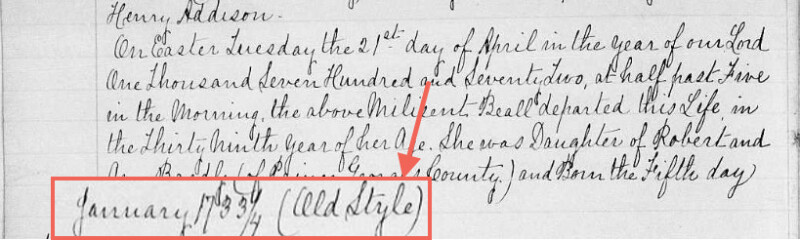 Henry Addison.
On Easter Tuesday the 21st day of April in the year of our Lord
One Thousand Seven Hundred and Seventy Two, at half past Five
in the Morning, the above Milisent Beall departed this Life, in
the Thirty Ninth Year of her Age. She was Daughter of Robert and
County.) and Born the Fifth day
January 1733/4 (Old Style)